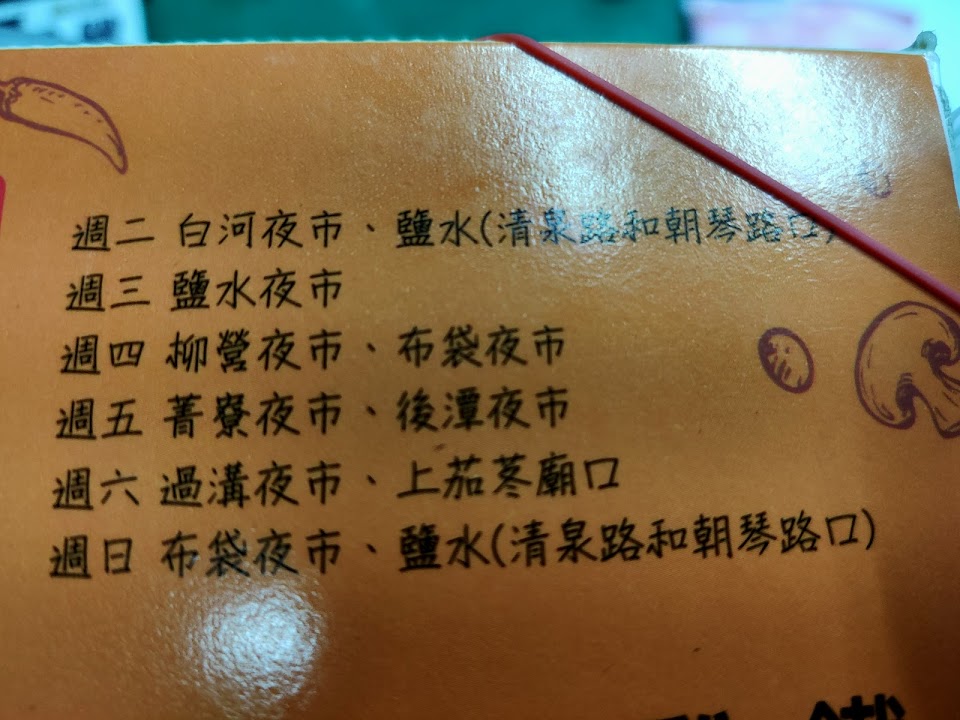 週二 白河夜市、鹽水(清泉路和朝琴路口)
週三 鹽水夜市
週四 柳營夜市、布袋夜市
週五 菁寮夜市、後潭夜市
週六 過溝夜市、上茄苳廟口
週日 布袋夜市、鹽水(清泉路和朝琴路口)